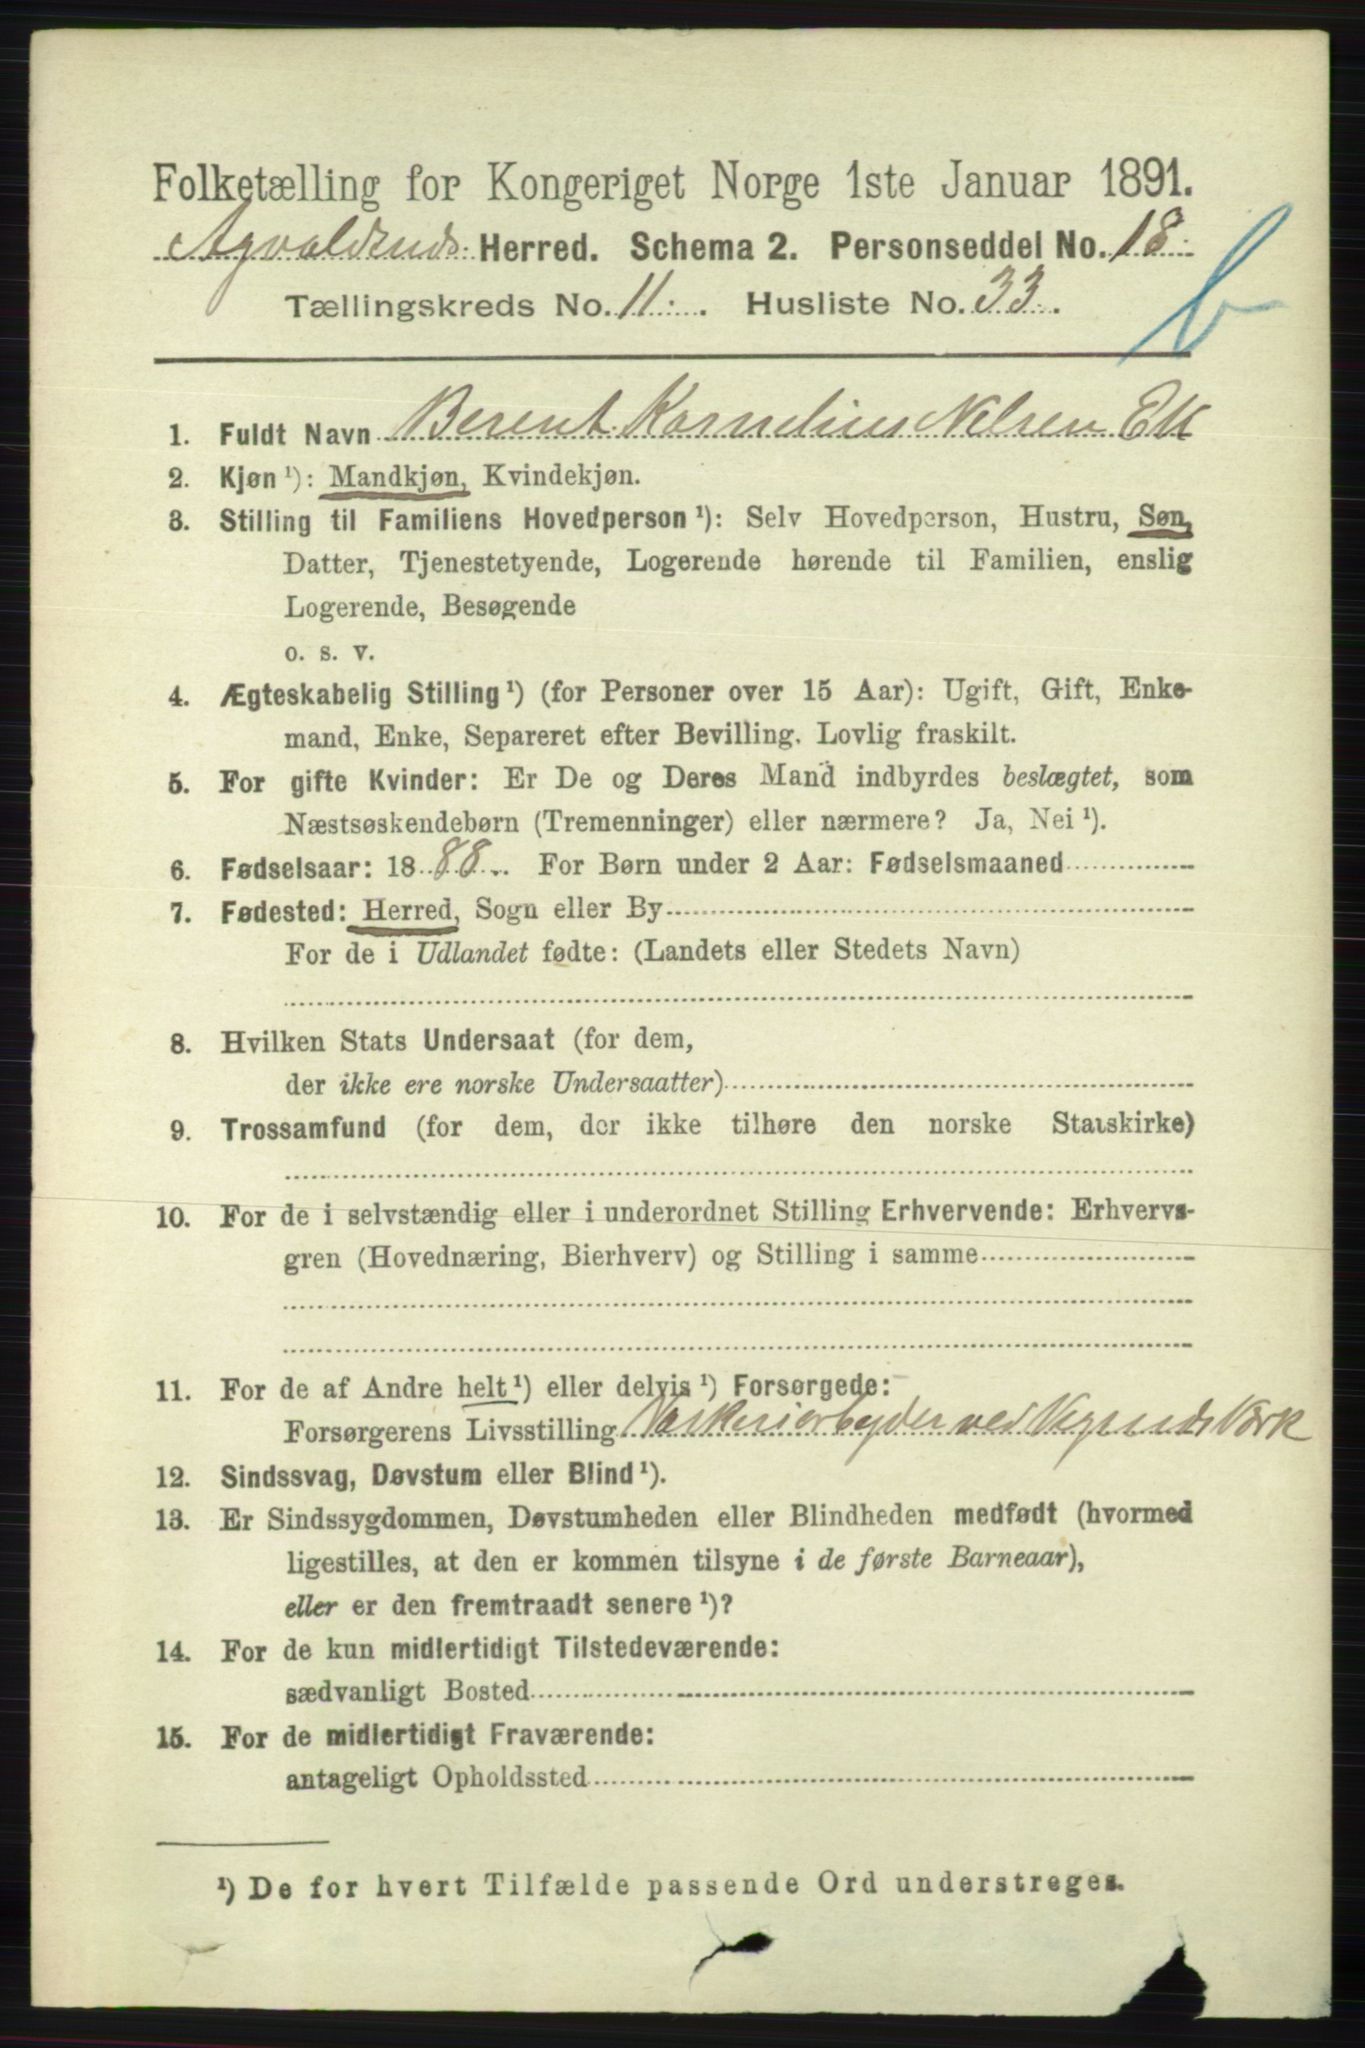 Folketælling for Kongeriget Norge 1ste Januar 1891.
Herred. Schema 2. Personseddel No. 18.
Tællingskreds No. 11. Husliste No. 33.
b
1. Fuldt Navn Berent Kornelius Nelsen
2. Kjøn ¹): Mandkjøn, Kvindekjøn.
3. Stilling til Familiens Hovedperson ¹): Selv Hovedperson, Hustru, Søn,
Datter, Tjenestetyende, Logerende hørende til Familien, enslig
Logerende, Besøgende
o. s. v.
4. Ægteskabelig Stilling ¹) (for Personer over 15 Aar): Ugift, Gift, Enke-
mand, Enke, Separeret efter Bevilling. Lovlig fraskilt.
5. For gifte Kvinder: Er De og Deres Mand indbyrdes beslægtet, som
Næstsøskendebørn (Tremenninger) eller nærmere? Ja, Nei ¹).
6. Fødselsaar: 1888. For Børn under 2 Aar: Fødselsmaaned
7. Fødested: Herred, Sogn eller By
For de i Udlandet fødte: (Landets eller Stedets Navn)
8. Hvilken Stats Undersaat (for dem,
der ikke ere norske Undersaatter)
9. Trossamfund (for dem, der ikke tilhøre den norske Statskirke)
10. For de i selvstændig eller i underordnet Stilling Erhvervende: Erhvervs-
gren (Hovednæring, Bierhverv) og Stilling i samme
11. For de af Andre helt ¹) eller delvis ¹) Forsørgede:
Forsørgerens Livsstilling ved Værk
12. Sindssvag, Døvstum eller Blind ¹).
13. Er Sindssygdommen, Døvstumheden eller Blindheden medfødt (hvormed
ligestilles, at den er kommen tilsyne i de første Barneaar),
eller er den fremtraadt senere ¹)?
14. For de kun midlertidigt Tilstedeværende:
sædvanligt Bosted
15. For de midlertidigt Fraværende:
antageligt Opholdssted
¹) De for hvert Tilfælde passende Ord understreges.